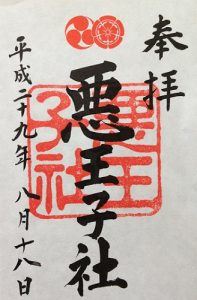 奉拝
悪王子社
平成二十九年八月十八日
悪王
子社